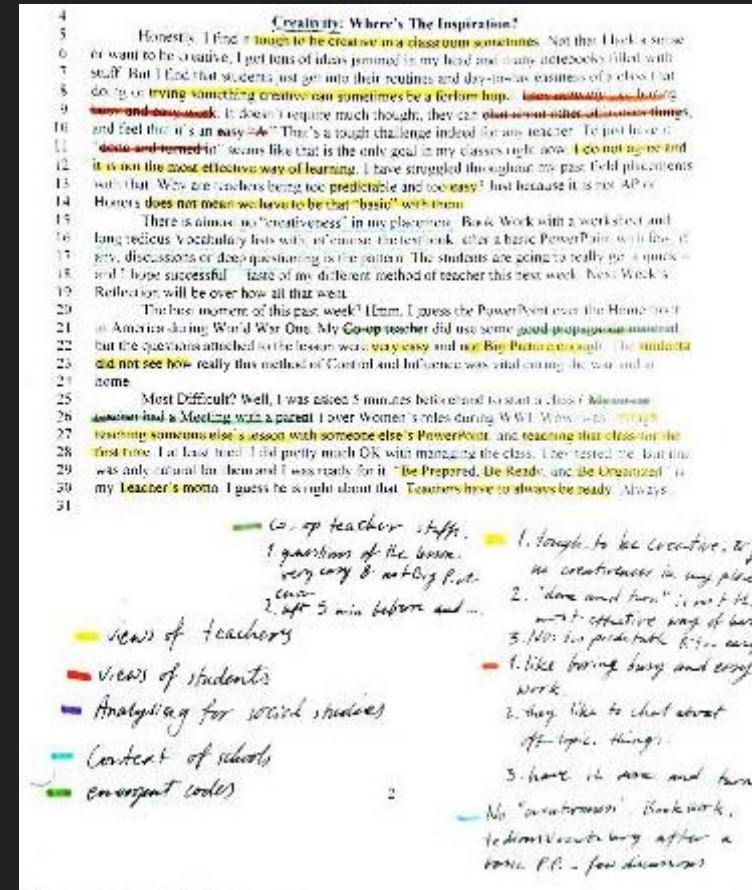 4
Creativity: Where's The Inspiration?
5 Honestly, I find it tough to be creative in a classroom sometimes. Not that I lack a sense
6 or want to be creative, I get tons of ideas jammed in my head and many notebooks filled with
7 stuff. But I find that students just get into their routines and day-to-day easiness of a class that
8 doing or trying something creative can sometimes be a forlorn hop.
9 busy and easy work. It doesn't require much thought, they can chat about other things,
10 and feel that it's an easy "A." That's a tough challenge indeed for any teacher. To just have it
11 "done and turned in" seems like that is the only goal in my classes right now. I do not agree and
12 it is not the most effective way of learning. I have struggled throughout my past field placements
13 with that. Why are teachers being too predictable and too easy? Just because it is not AP or
14 Honors does not mean we have to be that "basic" with them.
15 There is almost no "creativeness" in my placement. Book Work with a worksheet and
16 long tedious Vocabulary lists with, of course, the textbook, after a basic PowerPoint with few, if
17 any, discussions or deep questioning is the pattern. The students are going to really get a quick –
18 and I hope successful – taste of my different method of teacher this next week. Next Week's
19 Reflection will be over how all that went.
20 The best moment of this past week? Hmm, I guess the PowerPoint over the Home front
21 in America during World War One. My Co-op teacher did use some good propaganda material
22 but the questions attached to the lesson were very easy and not Big Picture enough. The students
23 did not see how really this method of Control and Influence was vital during the war and at
24 home.
25 Most Difficult? Well, I was asked 5 minutes beforehand to start a class (
26 teacher had a Meeting with a parent) over Women's roles during WWI. Wow,
27 teaching someone else's lesson with someone else's PowerPoint, and teaching that class for the
28 first time. I at least tried. I did pretty much OK with managing the class. They tested me. But that
29 was only natural for them and I was ready for it. "Be Prepared, Be Ready, and Be Organized" is
30 my Teacher's motto. I guess he is right about that. Teachers have to always be ready. Always.
31
Co-op teacher stuffs.
1. questions of the lesson.
very easy & not Big Pict-
2. 5 min before and ...
views of teachers
views of students
Analysing for social studies
Context of schools
emergent codes
1. tough to be creative,
no creativeness in my
2. "done and turn" is not the
most effective way of
3. predictable & too easy
1. like boring busy and easy
work.
2. they like to chat about
off-topic things.
3. have it done and turn
No "creativeness". Book work,
tedious vocabulary after a
basic P.P. - few discussions
2